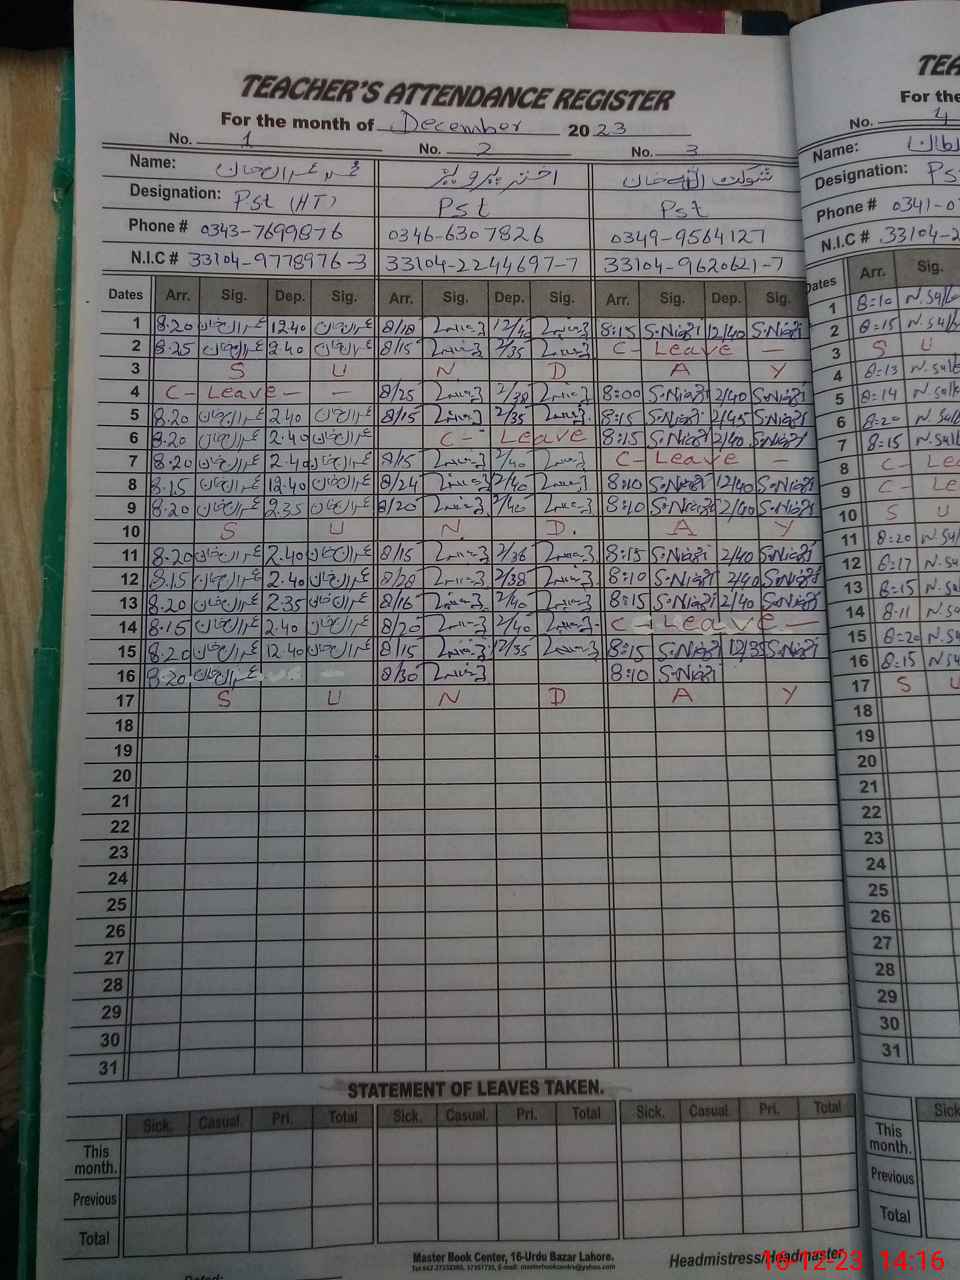 TEACHER'S ATTENDANCE REGISTER
For the month of December 2023
No. 1 No. 2 No. 3
Name: محمد عمران خان اختر پرویز شوکت اللہ خان
Designation: Pst (HT) Pst Pst
Phone # 0343-7699876 0346-6307826 0349-9564127
N.I.C # 33104-9778976-3 33104-2244697-7 33104-9620621-7
Dates Arr. Sig. Dep. Sig. Arr. Sig. Dep. Sig. Arr. Sig. Dep. Sig.
1 8.20 عمران خان 12.40 عمران خان 8/18 8:15 S.Niazi 12/40 S.Niazi
2 8.25 عمران خان 2.40 عمران خان 8/15 2/35 C- Leave —
3 S U N D A Y
4 C- Leave — — 8/25 2/38 8:00 S.Niazi 2/40 S.Niazi
5 8.20 عمران خان 2.40 عمران خان 8/15 2/35 8:15 S.Niazi 2/45 S.Niazi
6 8.20 عمران خان 2.40 عمران خان C- Leave 8:15 S.Niazi 2/40 S.Niazi
7 8.20 عمران خان 2.40 عمران خان 8/15 2/40 C- Leave —
8 8.15 عمران خان 12.40 عمران خان 8/24 12/40 8:10 S.Niazi 12/40 S.Niazi
9 8.20 عمران خان 2.35 عمران خان 8/20 2/40 8:10 S.Niazi 2/40 S.Niazi
10 S U N D. A Y
11 8.20 عمران خان 2.40 عمران خان 8/15 2/36 8:15 S.Niazi 2/40 S.Niazi
12 8.15 عمران خان 2.40 عمران خان 8/28 2/38 8:10 S.Niazi 2/40 S.Niazi
13 8.20 عمران خان 2.35 عمران خان 8/16 2/40 8:15 S.Niazi 2/40 S.Niazi
14 8.15 عمران خان 2.40 عمران خان 8/20 2/40 C- Leave —
15 8.20 عمران خان 12.40 عمران خان 8/15 12/35 8:15 S.Niazi 12/35 S.Niazi
16 8.20 عمران خان 8/30 8:10 S.Niazi
17 S U N D A Y
18
19
20
21
22
23
24
25
26
27
28
29
30
31
STATEMENT OF LEAVES TAKEN.
Sick. Casual. Pri. Total Sick. Casual. Pri. Total Sick. Casual. Pri. Total
This month.
Previous
Total
Master Book Center, 16-Urdu Bazar Lahore.
Headmistress/Headmaster
For the
No. 4
Name:
Designation:
Phone # 0341-0
N.I.C # 33104-2
Dates Arr. Sig.
1 8:10
2 8:15
3 S U
4 8:13
5 8:14
6 8:20
7 8:15
8 C-
9 C-
10 S U
11 8:20
12 8:17
13 8:15
14 8:11
15 8:20
16 8:15
17 S
18
19
20
21
22
23
24
25
26
27
28
29
30
31
Sick
This month.
Previous
Total
16-12-23 14:16